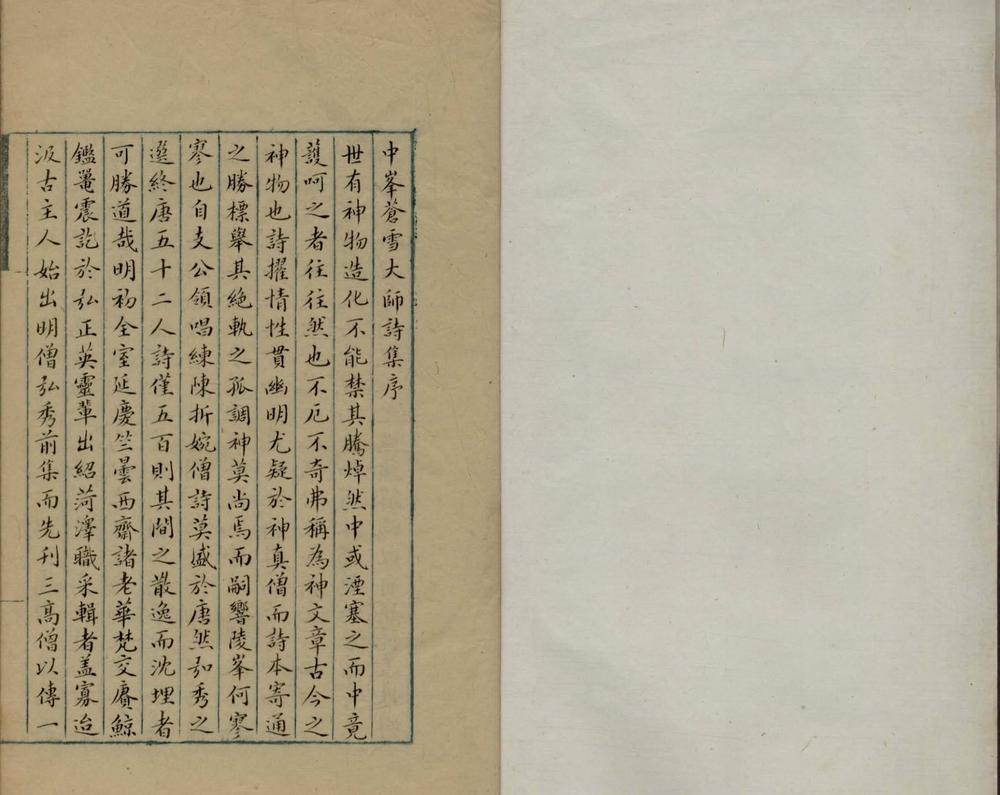 中峯蒼雪大師詩集序
世有神物造化不能禁其騰焯然中或湮塞之而中竟
護呵之者往往然也不厄不奇弗稱為神文章古今之
神物也詩擢情性貫幽明尤疑於神真僧而詩本寄通
之勝標舉其絶軌之孤調神莫尚焉而嗣響陵峯何寥
寥也自支公領唱練陳折婉僧詩莫盛於唐然弘秀之
選終唐五十二人詩僅五百則其間之散逸而沈埋者
可勝道哉明初全室延慶竺曇西齋諸老華梵交賡鯨
鑑鼉震訖於弘正英靈輩出紹菏澤職采輯者盖寡迨
汲古主人始出明僧弘秀前集而先刊三高僧以傳一